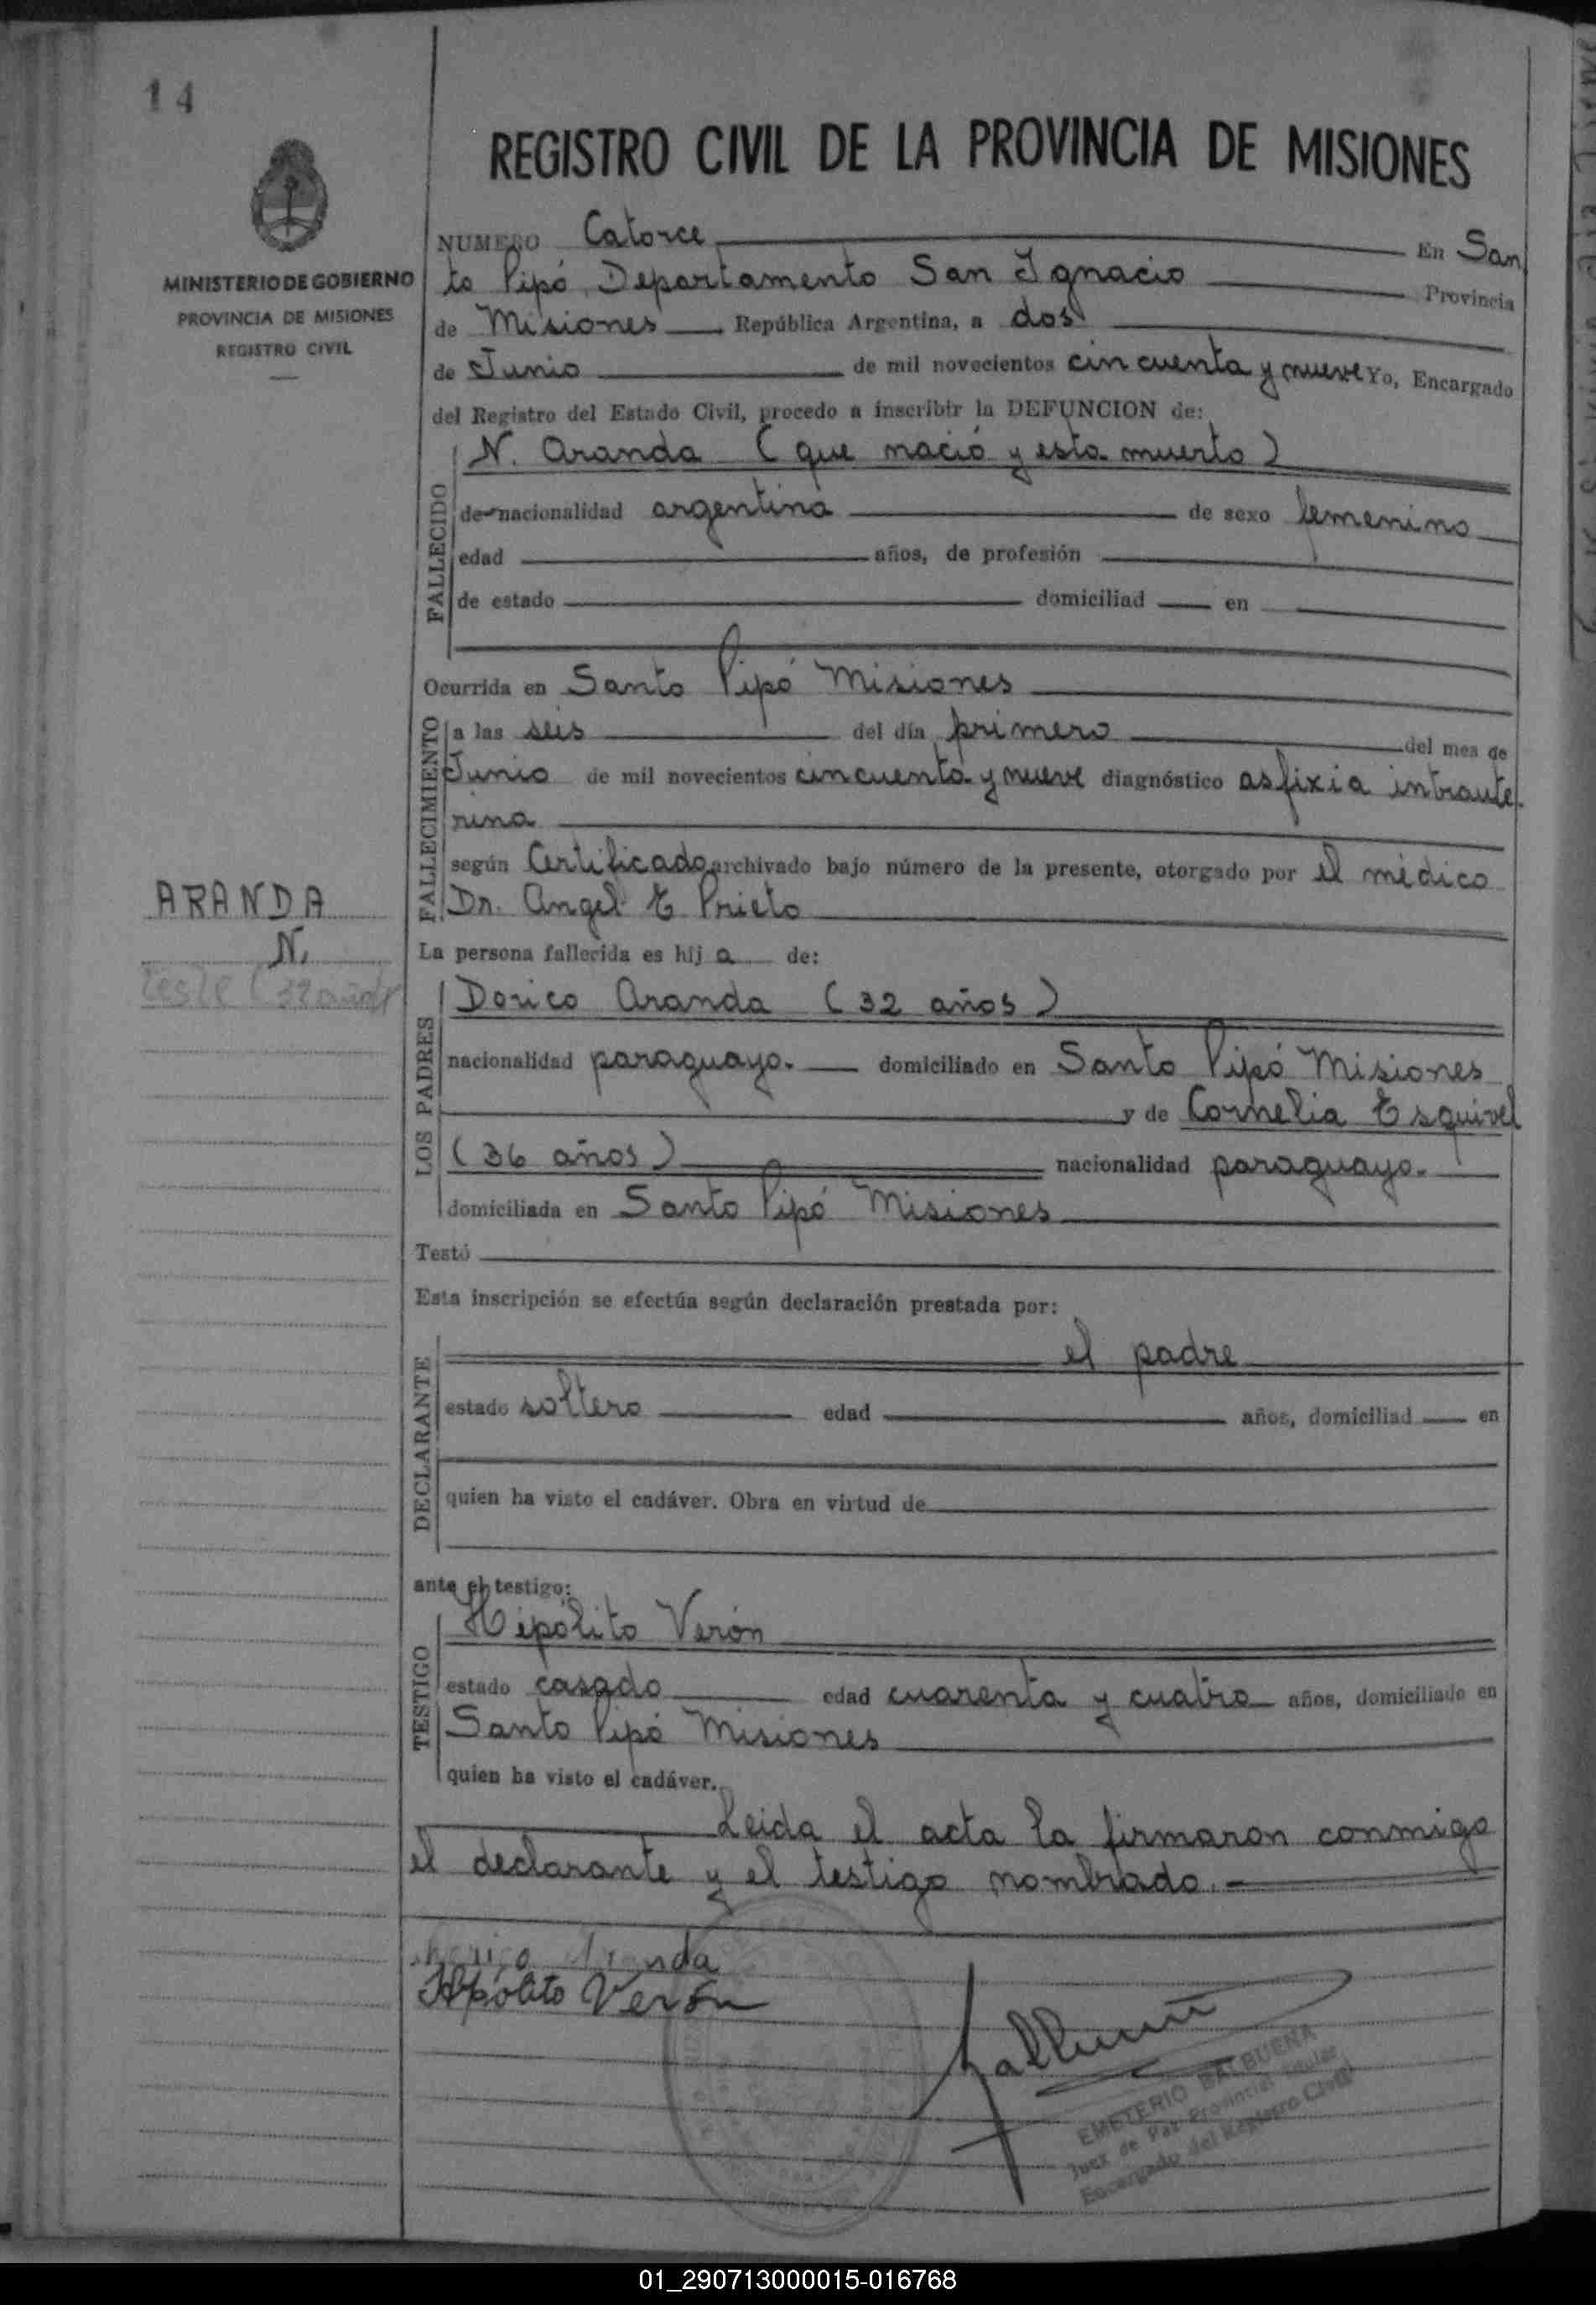 14
REGISTRO CIVIL DE LA PROVINCIA DE MISIONES
MINISTERIO DE GOBIERNO
PROVINCIA DE MISIONES
REGISTRO CIVIL
NUMERO Catorce En San
to Pipó, Departamento San Ignacio Provincia
de Misiones República Argentina, a dos
de Junio de mil novecientos cincuenta y nueve Yo, Encargado
del Registro del Estado Civil, procedo a inscribir la DEFUNCION de:
FALLECIDO
N. Aranda (que nació y esta muerto)
de nacionalidad argentina de sexo femenino
edad años, de profesión
de estado domiciliad en
Ocurrida en Santo Pipó Misiones
FALLECIMIENTO
a las seis del día primero del mes de
Junio de mil novecientos cincuenta y nueve diagnóstico asfixia intraute
rina
según Certificado archivado bajo número de la presente, otorgado por el médico
Dr. Angel E Prieto
ARANDA
N.
La persona fallecida es hij a de:
LOS PADRES
Dorico Aranda (32 años)
nacionalidad paraguayo. domiciliado en Santo Pipó Misiones
y de Cornelia Esquivel
(36 años) nacionalidad paraguayo.
domiciliada en Santo Pipó Misiones
Testó
Esta inscripción se efectúa según declaración prestada por:
DECLARANTE
el padre
estado soltero edad años, domiciliad en
quien ha visto el cadáver. Obra en virtud de
ante el testigo:
TESTIGO
Hipólito Verón
estado casado edad cuarenta y cuatro años, domiciliado en
Santo Pipó Misiones
quien ha visto el cadáver.
Leida el acta la firmaron conmigo
el declarante y el testigo nombrado.-
Hipólito Verón
EMETERIO BALBUENA
Juez de Paz Provincial Titular
Encargado del Registro Civil
01_290713000015-016768